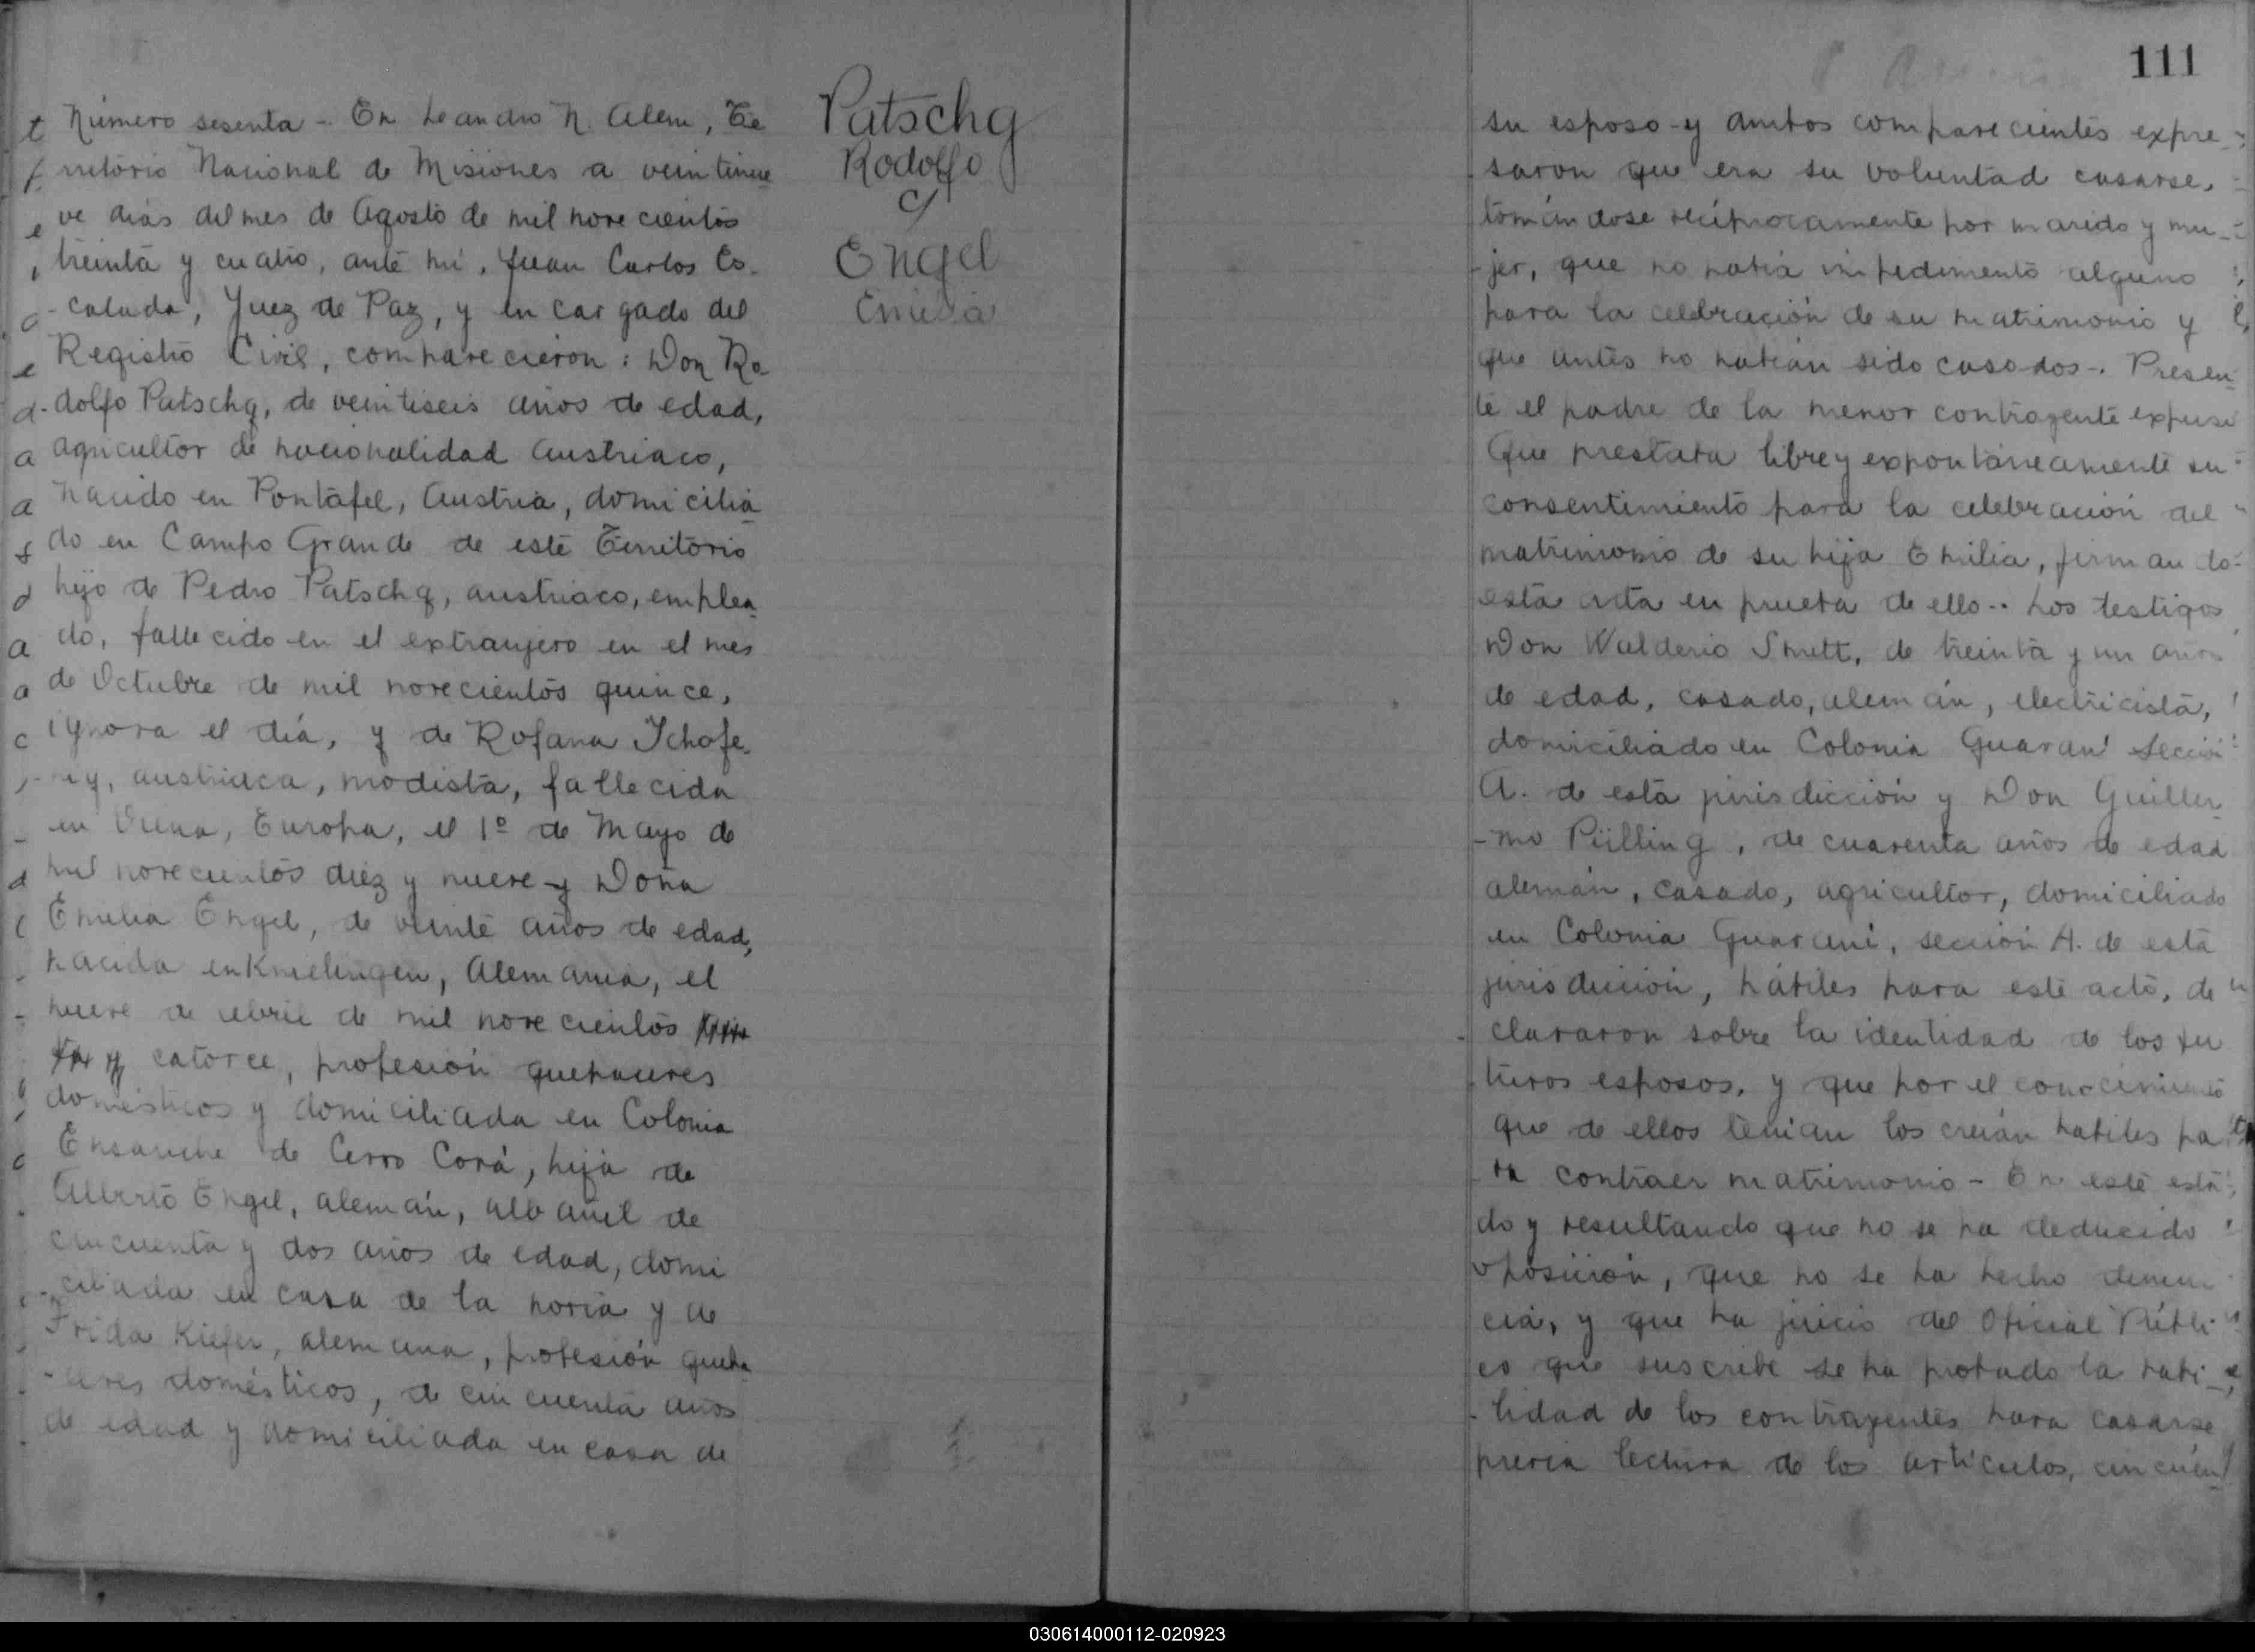 Número sesenta - En Leandro N. Alem, Te
rritorio Nacional de Misiones a veintinue
ve días del mes de Agosto de mil novecientos
treinta y cuatro, ante mí, Juan Carlos Es-
-calada, Juez de Paz, y encargado del
Registro Civil, comparecieron: Don Ro
dolfo Patschg, de veintiseis años de edad,
agricultor de nacionalidad austriaco,
nacido en Pontafel, Austria, domicilia
do en Campo Grande de este Territorio
hijo de Pedro Patschg, austriaco, emplea
do, fallecido en el extranjero en el mes
de Octubre de mil novecientos quince,
ignora el día, y de Rofana
austriaca, modista, fallecida
en Viena, Europa, el 1º de Mayo de
mil novecientos diez y nueve y Doña
Emilia Engel, de veinte años de edad,
nacida en Knielingen, Alemania, el
nueve de abril de mil novecientos
catorce, profesión quehaceres
domésticos y domiciliada en Colonia
Ensanche de Cerro Corá, hija de
Alberto Engel, alemán, albañil de
cincuenta y dos años de edad, domi
-ciliada en casa de la novia y de
Frida Kiefer, alemana, profesión queha
-ceres domésticos, de cincuenta años
de edad y domiciliada en casa de
Patschg
Rodolfo
c/
Engel
Emilia
111
su esposo - y ambos comparecientes expre-
saron que era su voluntad casarse,
tomándose recíprocamente por marido y mu-
-jer, que no había impedimento alguno
para la celebración de su matrimonio y
que antes no habían sido casados-. Presen
te el padre de la menor contrayente expuso
Que prestaba libre y expontáneamente su
consentimiento para la celebración del
matrimonio de su hija Emilia, firmando
esta acta en prueba de ello-. Los testigos
Don Walderio Smett, de treinta y un años
de edad, casado, alemán, electricista,
domiciliado en Colonia Guaraní Sección
A. de esta jurisdicción y Don Guiller
-mo Pülling, de cuarenta años de edad
alemán, casado, agricultor, domiciliado
en Colonia Guaraní, sección A. de esta
jurisdicción, hábiles para este acto, de
clararon sobre la identidad de los fu
turos esposos, y que por el conocimiento
que de ellos tenían los creían hábiles pa
ra contraer matrimonio - En este esta
do y resultando que no se ha deducido
oposición, que no se ha hecho denun
cia, y que ha juicio del Oficial Públi
co que suscribe se ha probado la habi-
-lidad de los contrayentes para casarse
previa lectura de los artículos, cincuen
030614000112-020923